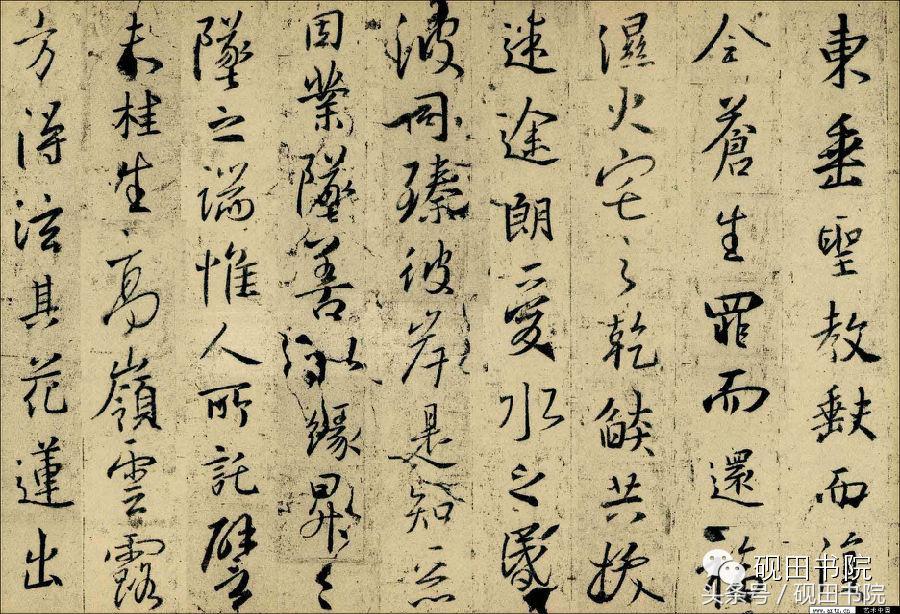 東垂聖教缺而復
全蒼生罪而還福
濕火宅之乾燄共拔
迷途朗愛水之昏
波同臻彼岸是知惡
因業墜善以緣昇〻
墜之端惟人所託譬
夫桂生高嶺雲露
方得泫其花蓮出
砚田书院
头条号 / 砚田书院
www.artx.cn 艺术中国